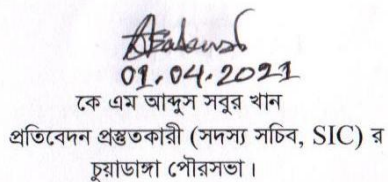 01.04.2021
কে এম আব্দুস সবুর খান
প্রতিবেদন প্রস্তুতকারী (সদস্য সচিব, SIC) র
চুয়াডাঙ্গা পৌরসভা।